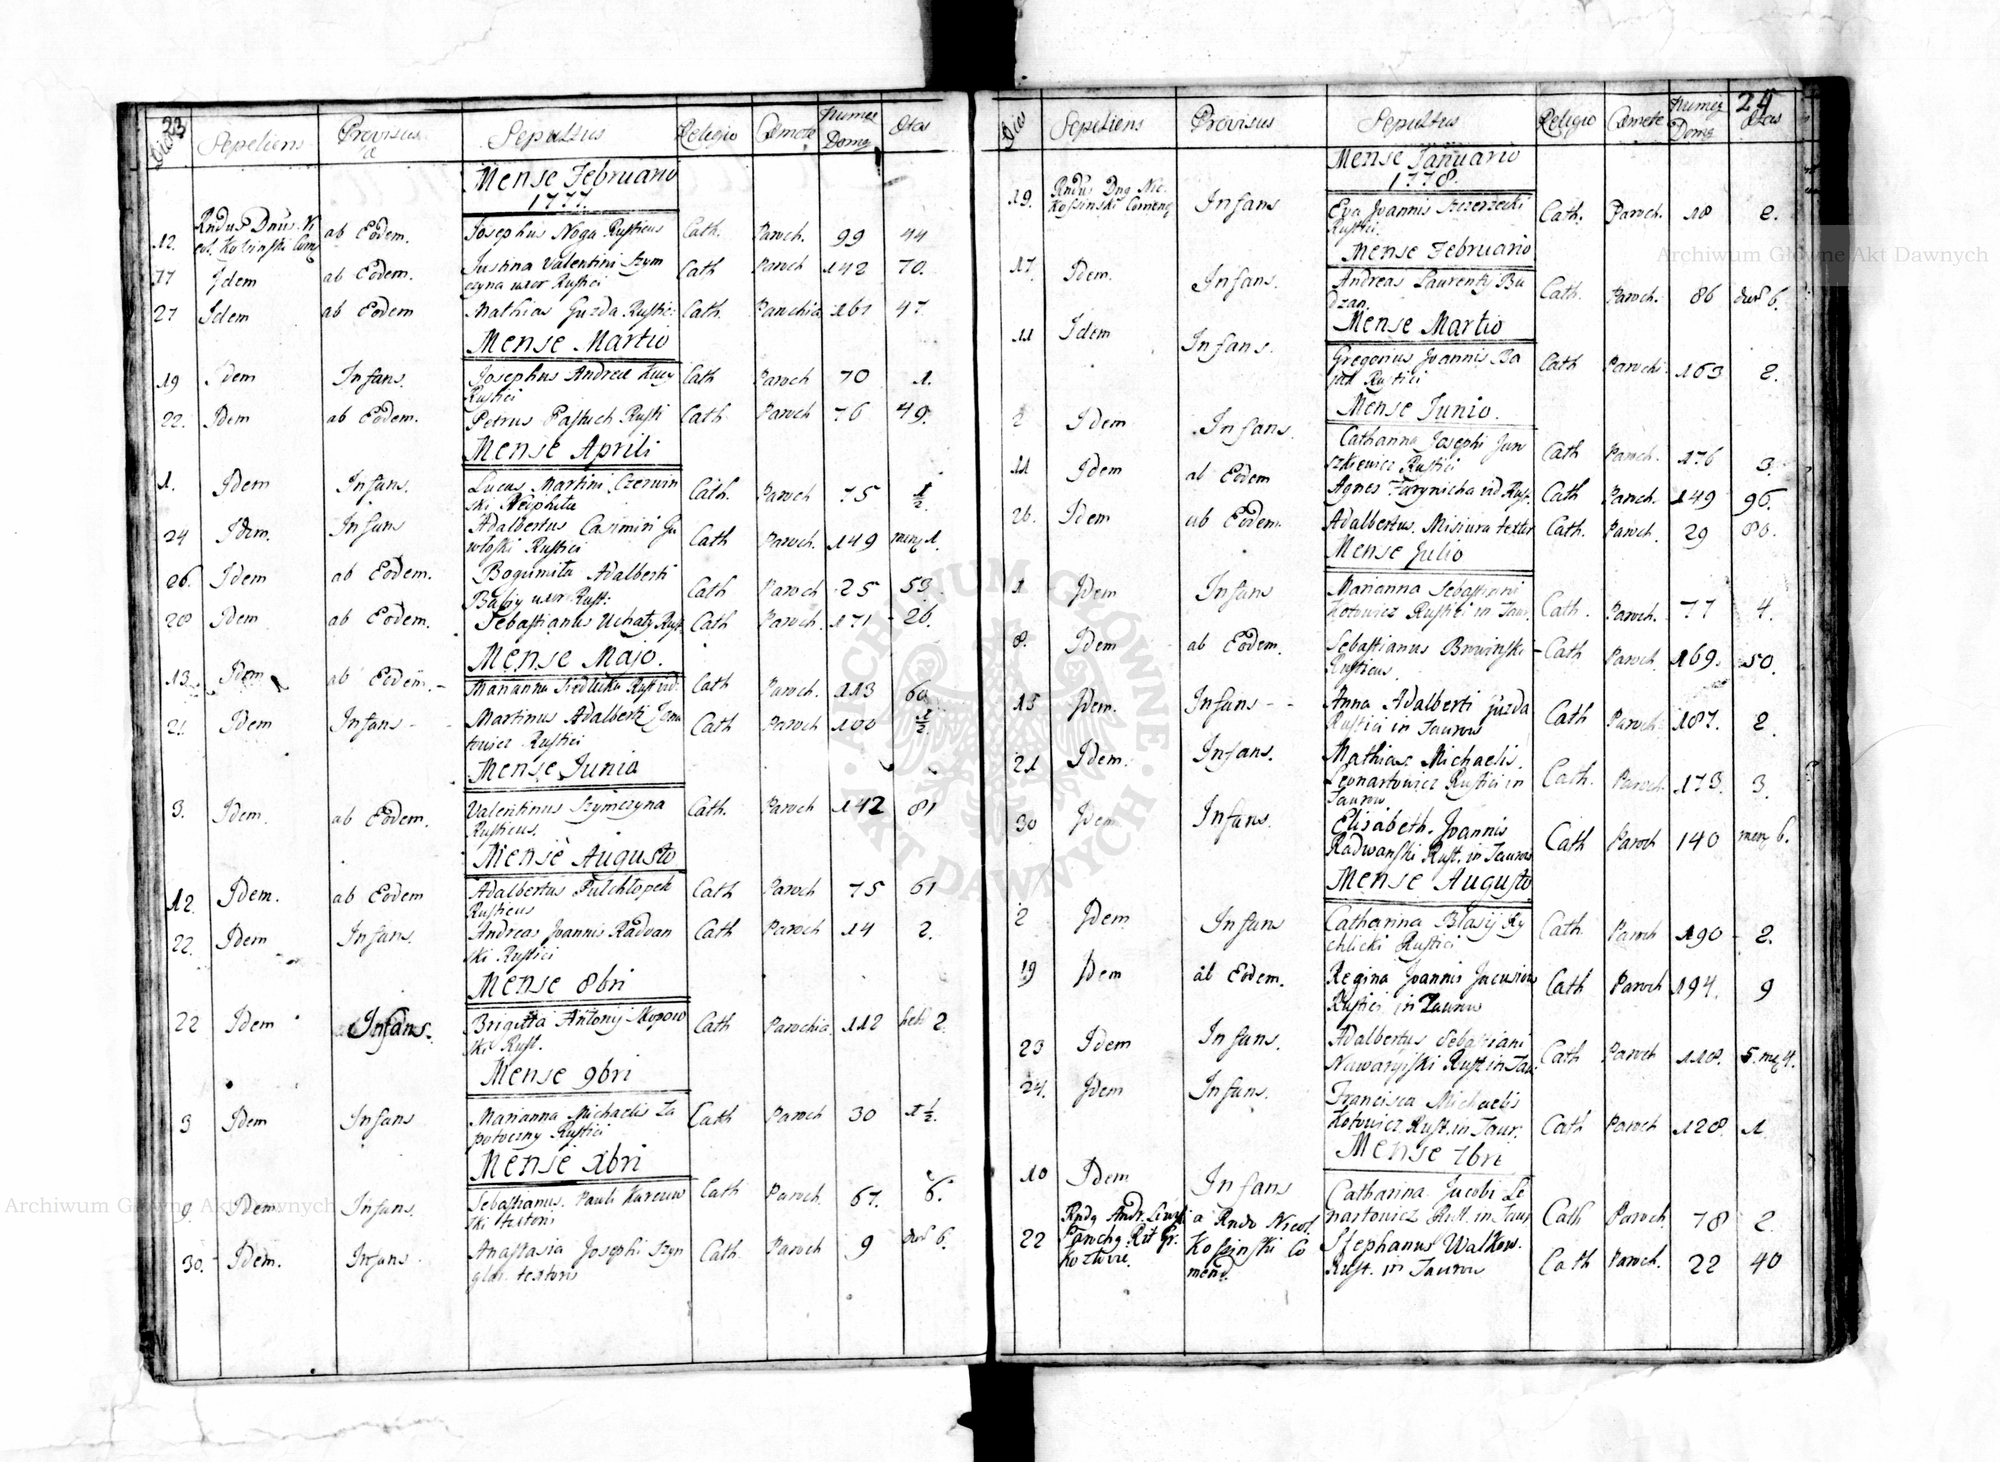 23
Dies Sepeliens Provisus a Sepultus Religio Cæmete Numer Domq Ætas
Mense Februario
1777.
12. Rndus Dnus Ni ab Eodem. Josephus Noga Rusticus Cath. Paroch. 99 44
col. Kossinski Com
17 Idem ab Eodem. Justina Valentini Szym Cath Paroch 142 70.
czyna uxor Rustici
27 Idem ab Eodem Mathias Guzda Rustic: Cath. Parochia 161 47.
Mense Martio
19 Idem Infans. Josephus Andreæ Cath Paroch 70 1.
Rustici
22. Idem ab Eodem. Petrus Pastuch Rusti Cath Paroch 76 49.
Mense Aprili
1. Idem Infans. Lucas Martini Czerwin Cath. Paroch 75 1/2.
ski Neophita
24 Idem. Infans Adalbertus Casimiri Ga Cath Paroch. 149 menq 1.
wloski Rustici
26. Idem ab Eodem. Bogumila Adalberti Cath Paroch 25 53.
uxor Rusti:
28 Idem ab Eodem. Sebastianus Uchaty Rust Cath Paroch. 171 26.
Mense Majo.
13. Idem ab Eodem. Marianna Siedlecka Rust vid. Cath Paroch. 113 60
21. Idem Infans Martinus Adalberti Cath Paroch 100 1/2.
towicz Rustici
Mense Junio
3. Idem. ab Eodem. Valentinus Szymczyna Cath. Paroch 142 81
Rusticus.
Mense Augusto
12. Idem. ab Eodem Adalbertus Pulchlopek Cath Paroch 75 61
Rusticus
22. Idem Infans. Andreas Joannis Radvan Cath Paroch 14 2.
ski Rustici
Mense 8bri
22 Idem Infans. Brigitta Antonij Cath Parochia 112 heb 2.
ski Rust.
Mense 9bri
3 Idem Infans Marianna Michaelis Za Cath Paroch 30 1 1/2.
potoczny Rustici
Mense Xbri
9. Idem Infans. Sebastianus. Pauli Cath Paroch. 67. 6.
ski textoris
30. Idem. Infans. Anastasia Josephi Szyn Cath. Paroch 9 6.
glar. textoris
24
Dies Sepeliens Provisus Sepultus Religio Cæmete Numer Domq Ætas
Mense Januario
1778.
19. Rndus Dnq Nic. Infans Eva Joannis Szczerzecki Cath. Paroch. 18 2.
Kossinski Comenq Rustici.
Mense Februario
17. Idem. Infans. Andreas Laurentij Bu Cath. Paroch. 86 6.
dzan.
Mense Martio
11 Idem Infans. Gregorius Joannis Ba Cath Parochi. 163 2.
Rustici
Mense Junio.
2 Idem Infans. Catharina Josephi Jun Cath Paroch. 176 3.
szkiewicz Rustici
11 Idem ab Eodem Agnes Furynicha vid Rust. Cath Paroch. 149 96.
26. Idem ab Eodem. Adalbertus. Misiura textor Cath. Paroch. 29 80.
Mense Julio
1 Idem Infans Marianna Sebastiani Cath. Paroch. 77 4.
Kotowicz Rustici in Taur.
8. Idem ab Eodem. Sebastianus Browinski Cath Paroch. 169. 50.
Rusticus.
15 Idem. Infans Anna Adalberti Guzda Cath Paroch. 187. 2.
Rustici in Taurow
21 Idem. Infans. Mathias Michaelis. Cath. Paroch. 173. 3.
Leonartowicz Rustici in
Taurow
30 Idem Infans. Elisabeth. Joannis Cath Paroch 140 men 6.
Radwanski Rust. in Taurow
Mense Augusto
2 Idem Infans Catharina Blasij Ry Cath. Paroch 190 2.
chlicki Rustici
19 Idem ab Eodem. Regina Joannis Cath Paroch 194. 9
Rustici in Taurow
23 Idem Infans. Adalbertus Sebastiani Cath Paroch 118. 5. mq 4.
Rust in Tau.
24. Idem Infans. Francisca Michaelis Cath Paroch 128. 1.
Kotowicz Rust. in Taur.
Mense 7bri
10 Idem Infans Catharina Jacobi Le Cath Paroch 78 2.
nartowicz Rust. in Taur
22 Rndq Andr. a Rndo Nicol. Stephanus Walkow. Cath Paroch. 22 40
Parochq Rit Gr. Kossinski Co Rust. in Taurow
mend.
Archiwum Główne Akt Dawnych
Archiwum Główne Akt Dawnych
ARCHIWUM GŁÓWNE AKT DAWNYCH